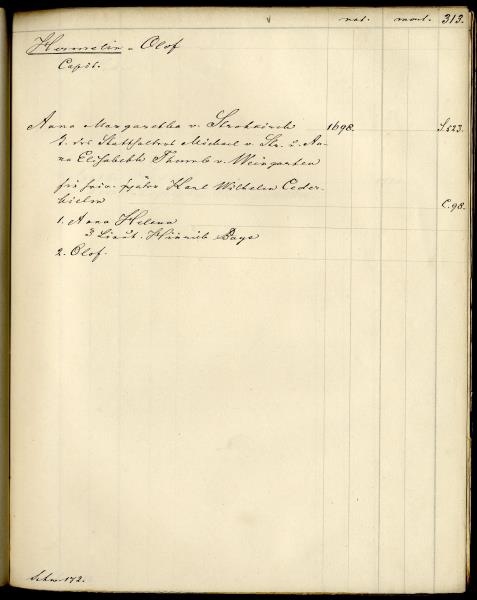 nat. mort. 313.
Hermelin - Olof
Capit.
Anna Margaretha v. Strokirch 1698. S. 523.
T. des Statthalters Michael v. Str. u. An-
na Elisabeth Thumb v. Weingarten
Karl Wilhelm Ceder-
hielm C. 98.
1. Anna Helena
Lieut. Hinrich
2. Olof.
172.